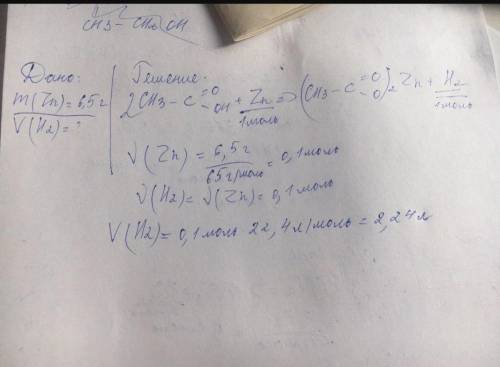 CH3 – CH2 OH
Дано:
m(Zn)=6,5г
V(H2)=?
Решение:
2CH3 – C =O – OH + Zn => (CH3 – C =O – O)2 Zn + H2
1моль 1моль
ν(Zn) = 6,5г / 65г/моль = 0,1моль
ν(H2)= ν(Zn)= 0,1моль
V(H2)= 0,1моль 22,4л/моль = 2,24л